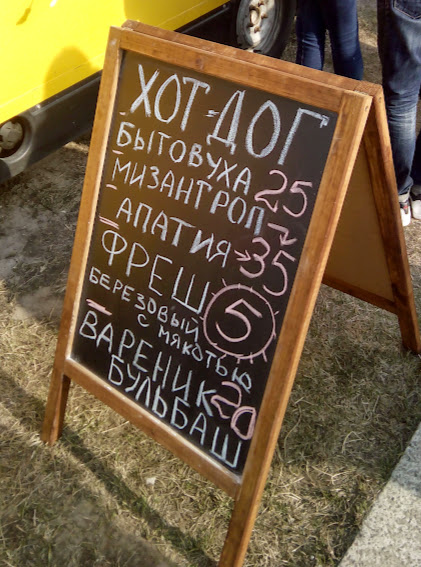 ХОТ-ДОГ
- БЫТОВУХА 25
- МИЗАНТРОП
- АПАТИЯ 35
ФРЕШ 5
БЕРЕЗОВЫЙ
С МЯКОТЬЮ
ВАРЕНИК 20
БУЛЬБАШ